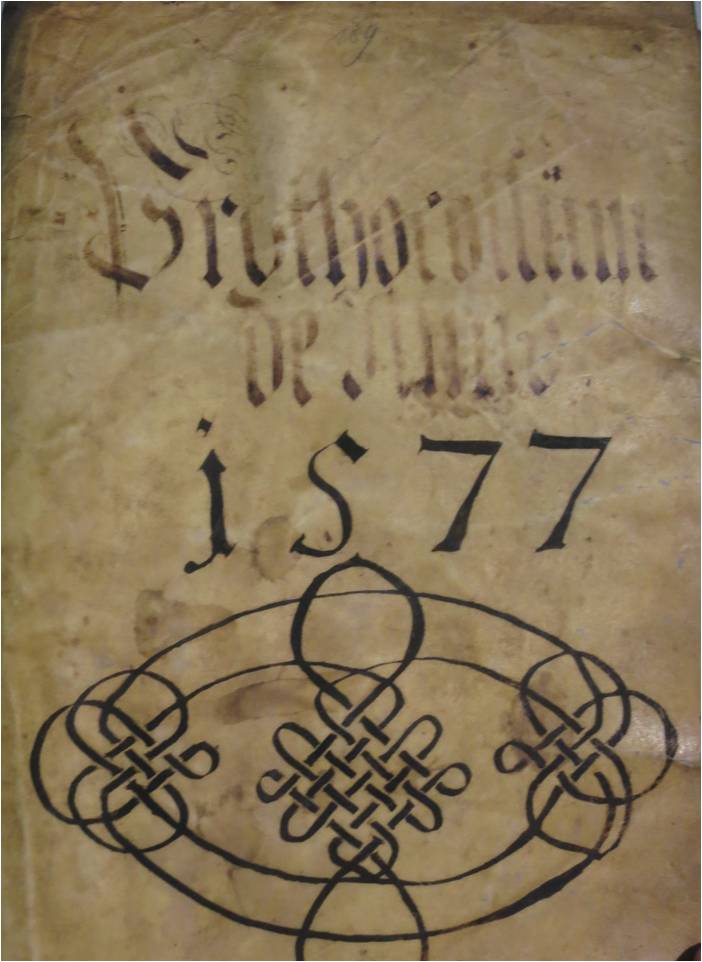 Prothocollum
de Anno
1577